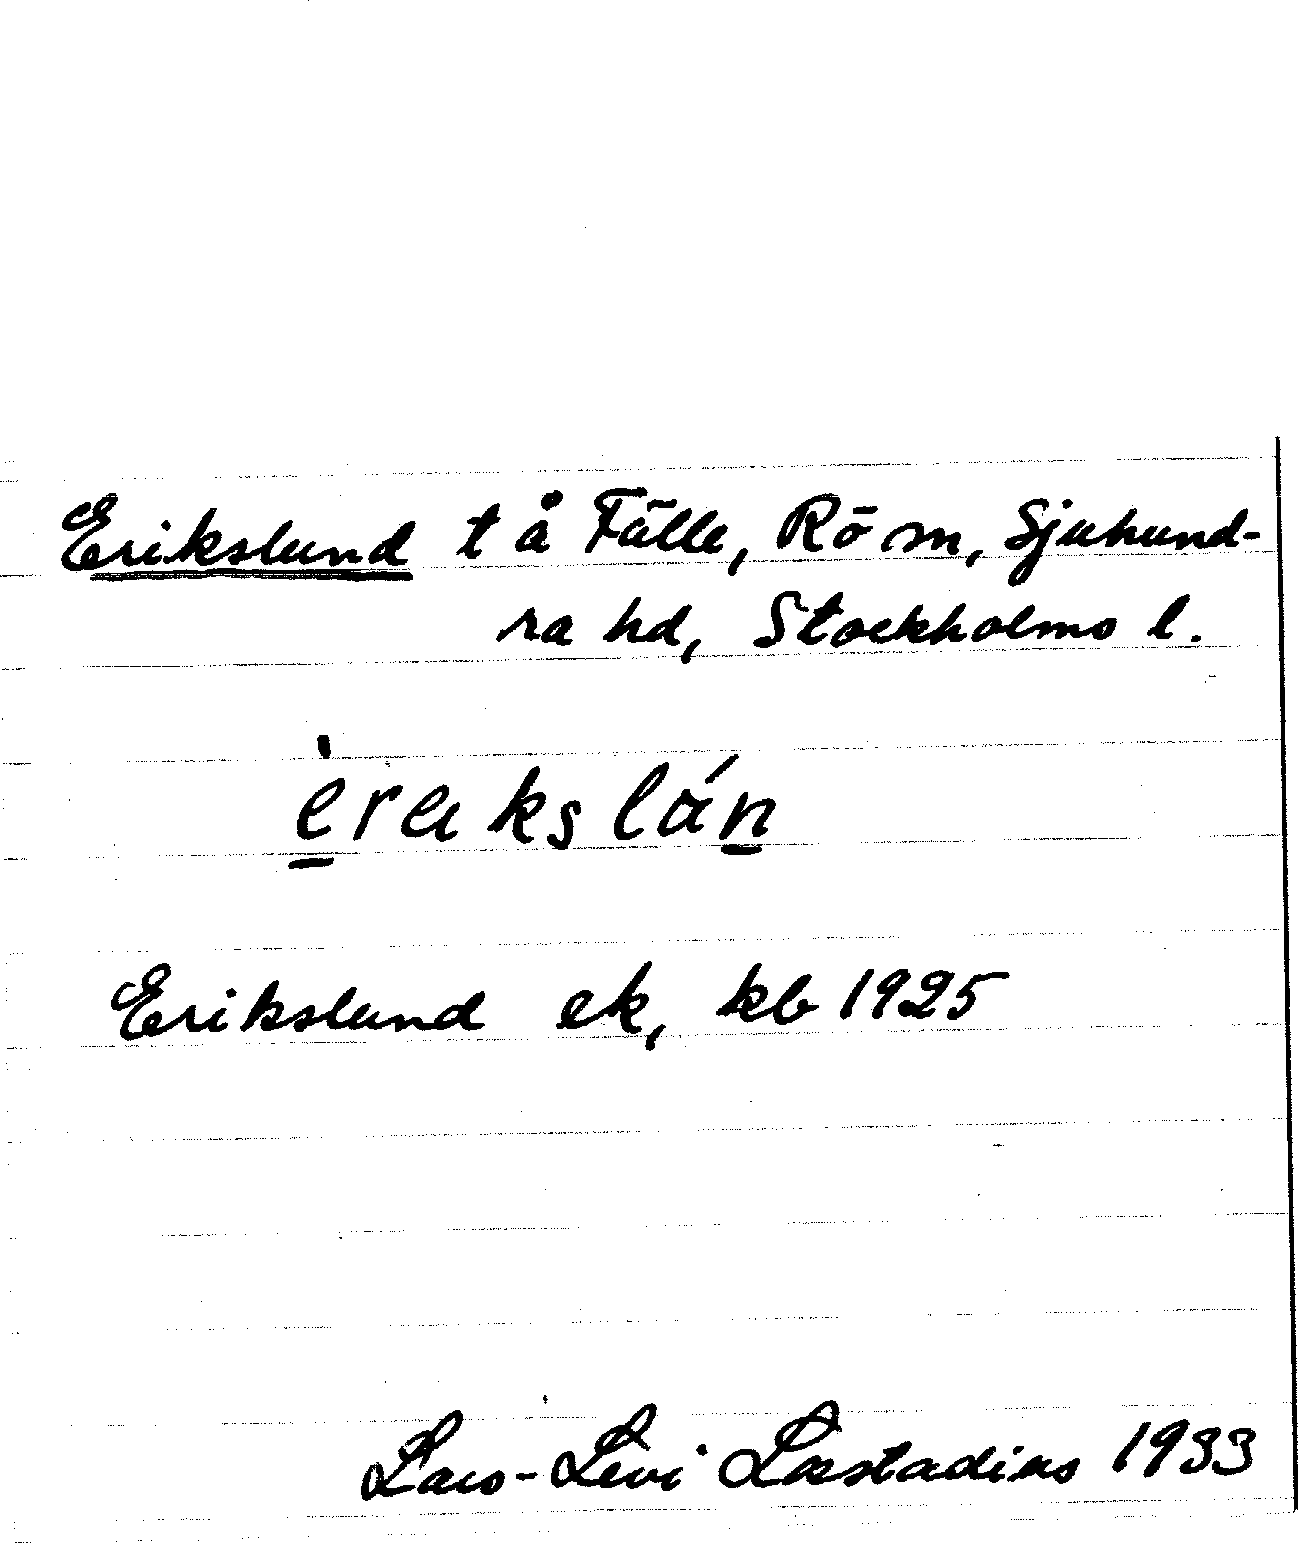 Erikslund t å Fälle, Rö sn, Sjuhund-
ra hd, Stockholms l.
èrakslán
Erikslund ek, kb 1925
Lars-Levi Læstadius 1933